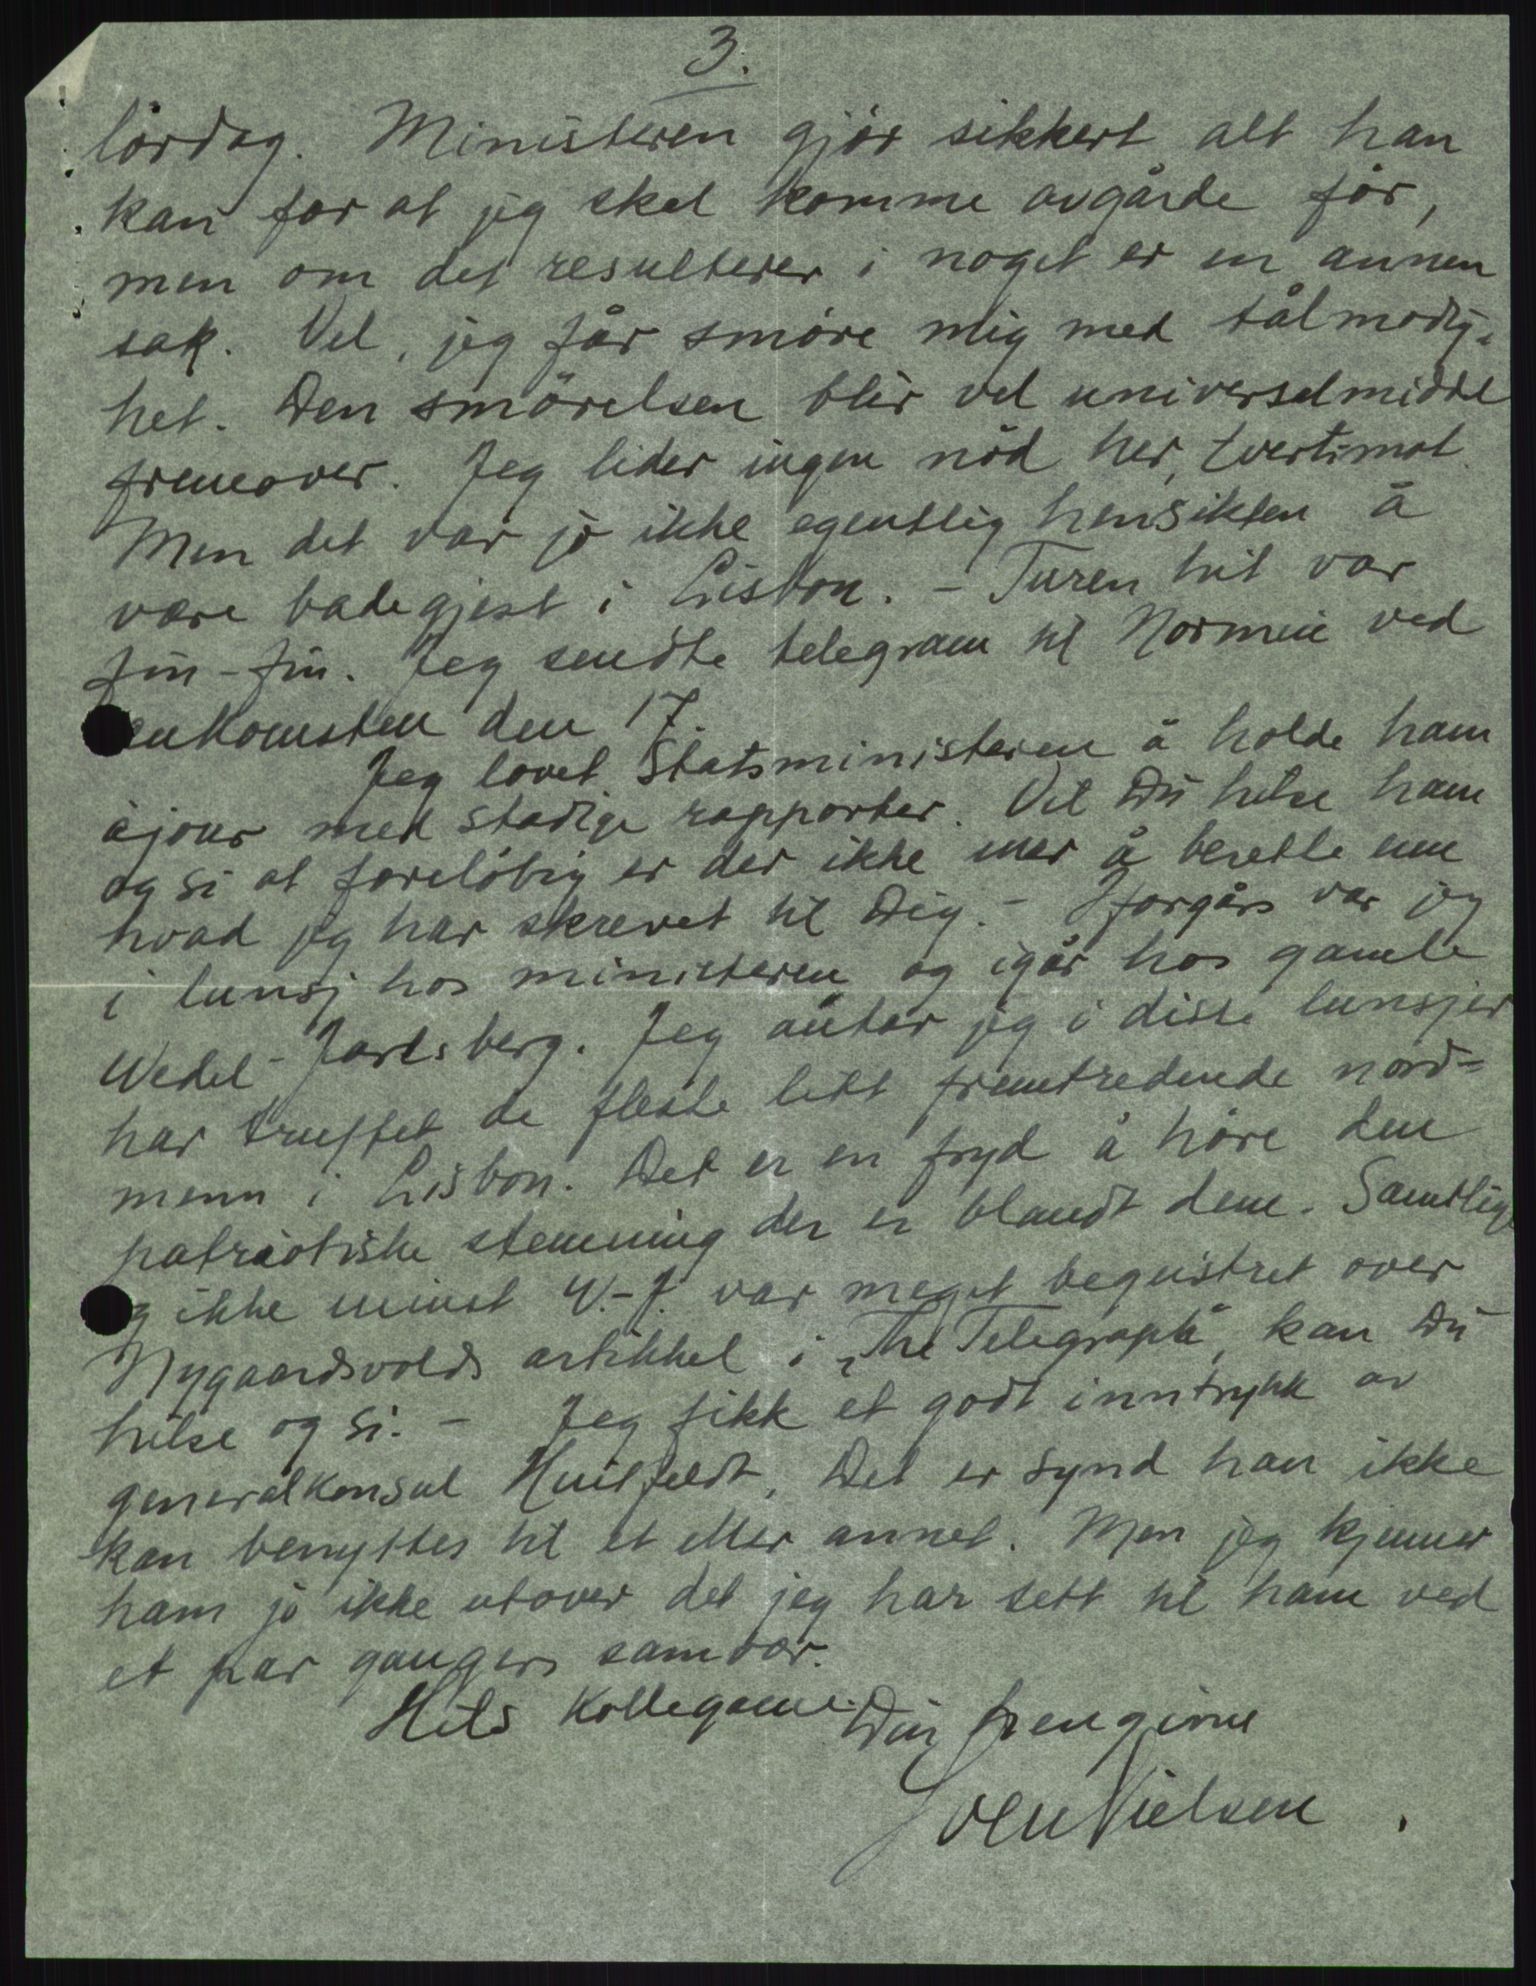 3.
lördag. Ministeren gjör sikkert alt han
kan for at jeg skal komme avgårde för,
men om det resulterer i noget er en annen
sak. Vel, jeg får smöre mig med tålmodig-
het. Den smörelsen blir vel universalmiddel
fremover. Jeg lider ingen nöd her, tvertimot.
Men det var jo ikke egentlig hensikten å
være badegjest i Lisbon. – Turen hit var
fin-fin. Jeg sendte telegram til Normin ved
ankomsten den 17.
Jeg lovet Statsministeren å holde ham
àjour med stadige rapporter. Vil Du hilse ham
og si at forelöbig er der ikke mer å berette enn
hvad jeg har skrevet til Dig. – Iforgårs var jeg
i lunsj hos ministeren og igår hos gamle
Wedel-Jarlsberg. Jeg antar jeg i disse lunsjer
har truffet de fleste litt fremtredende nord-
menn i Lisbon. Det er en fryd å höre den
patriotiske stemning der er blandt dem. Samtlige
og ikke minst W.-J. var meget begeistret over
Nygaardsvolds artikkel i „The Telegraph", kan Du
hilse og si. – Jeg fikk et godt inntrykk av
generalkonsul Huitfeldt. Det er synd han ikke
kan benyttes til et eller annet. Men jeg kjenner
ham jo ikke utover det jeg har sett til ham ved
et par gangers samvær.
Hils kollegaene. Din hengivne
Sven Nielsen.